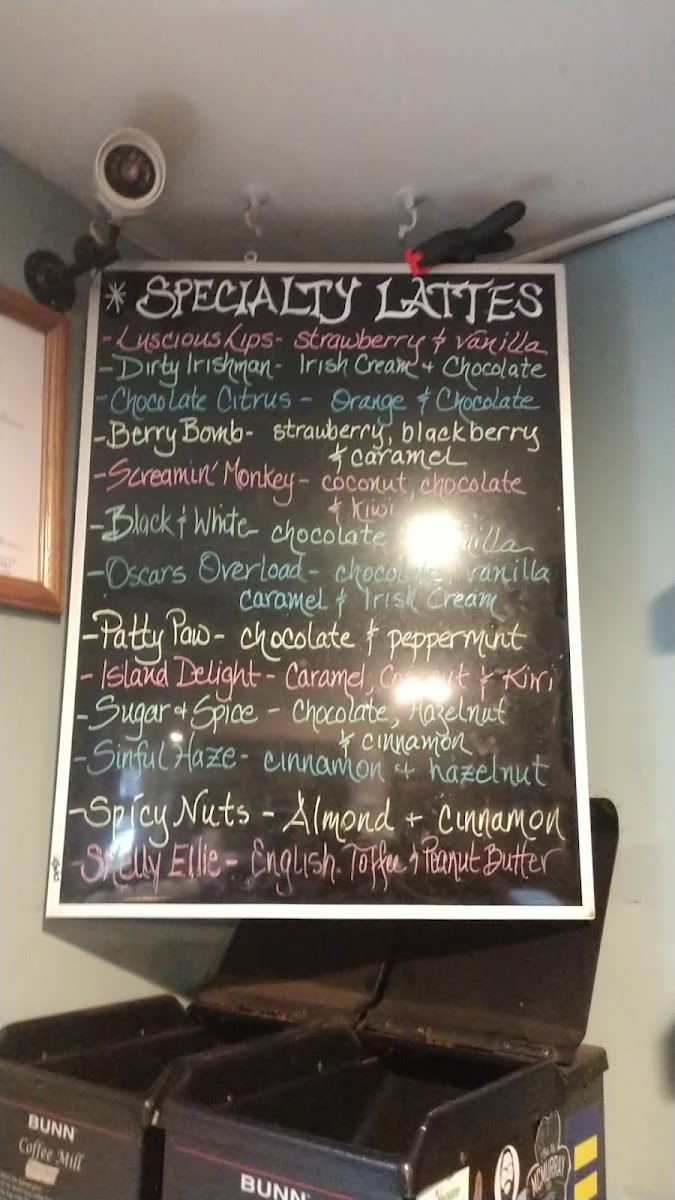 * SPECIALTY LATTES
- Luscious Lips - strawberry & vanilla
- Dirty Irishman - Irish Cream + Chocolate
- Chocolate Citrus - Orange & Chocolate
- Berry Bomb - strawberry, blackberry
& caramel
- Screamin' Monkey - coconut, chocolate
& Kiwi
- Black & White - chocolate
- Oscars Overload - chocolate, vanilla
caramel & Irish Cream
- Patty Paw - chocolate & peppermint
- Island Delight - Caramel, Coconut & Kiwi
- Sugar & Spice - Chocolate, Hazelnut
& cinnamon
- Sinful Haze - cinnamon + hazelnut
- Spicy Nuts - Almond + Cinnamon
- Ellie - English Toffee & Peanut Butter
BUNN
Coffee Mill
BUNN
MCMURRAY